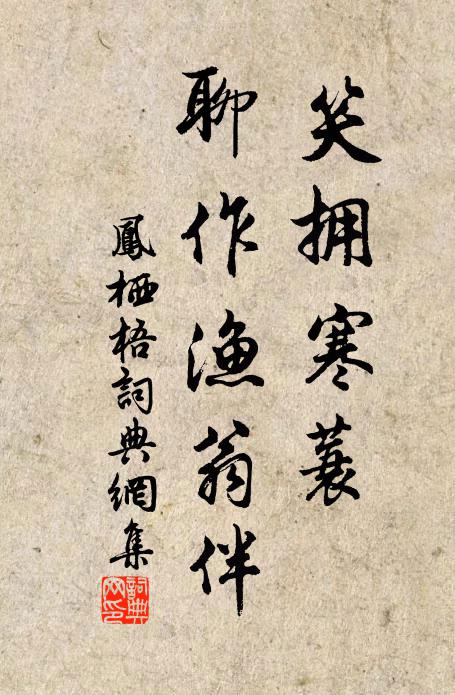 笑拥寒蓑
聊作漁翁伴
鳳栖梧詞典網集
詞典